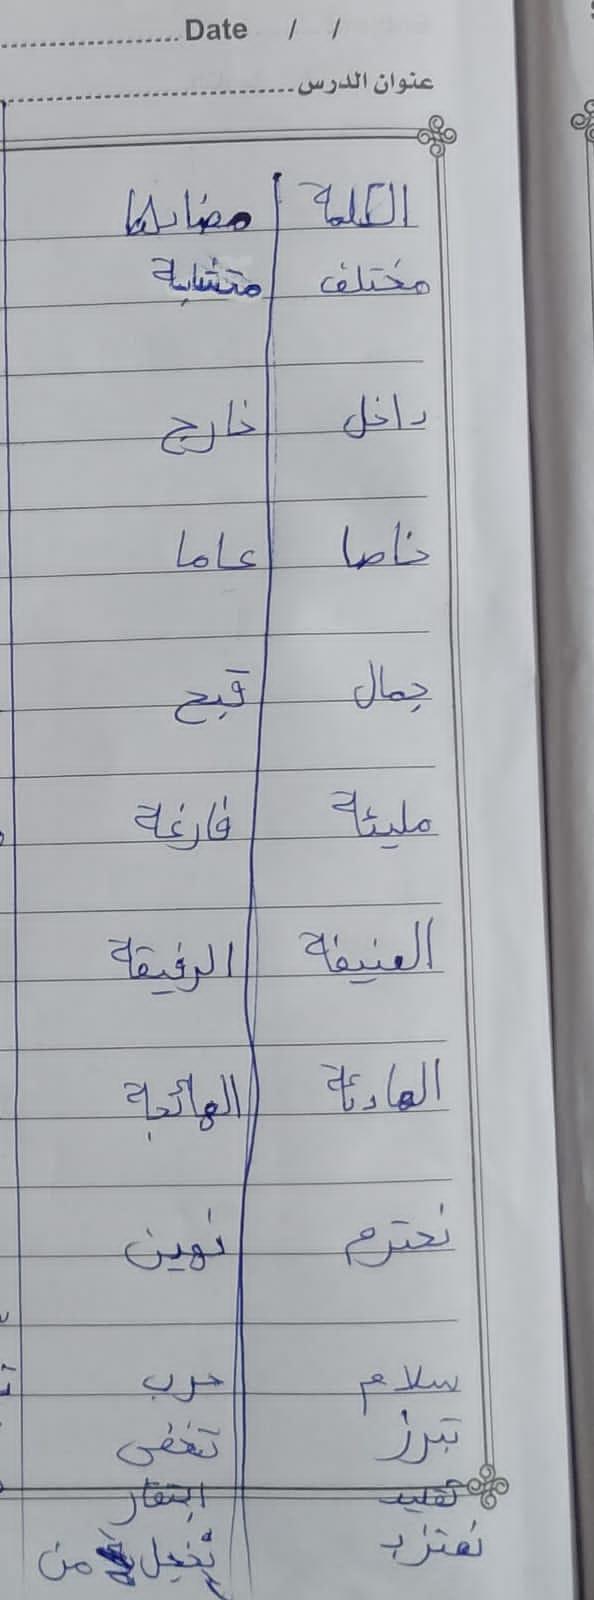 Date / /
عنوان الدرس
الكلمة مضادها
مختلف متشابة
داخل خارج
خاصا عاما
جمال قبح
مليئة فارغة
العنيفة الرفيقة
الهادئة الهائجة
نحترم نهين
سلام حرب
تبرز تخفى
تقليد ابتكار
نعتز بـ نخجل من